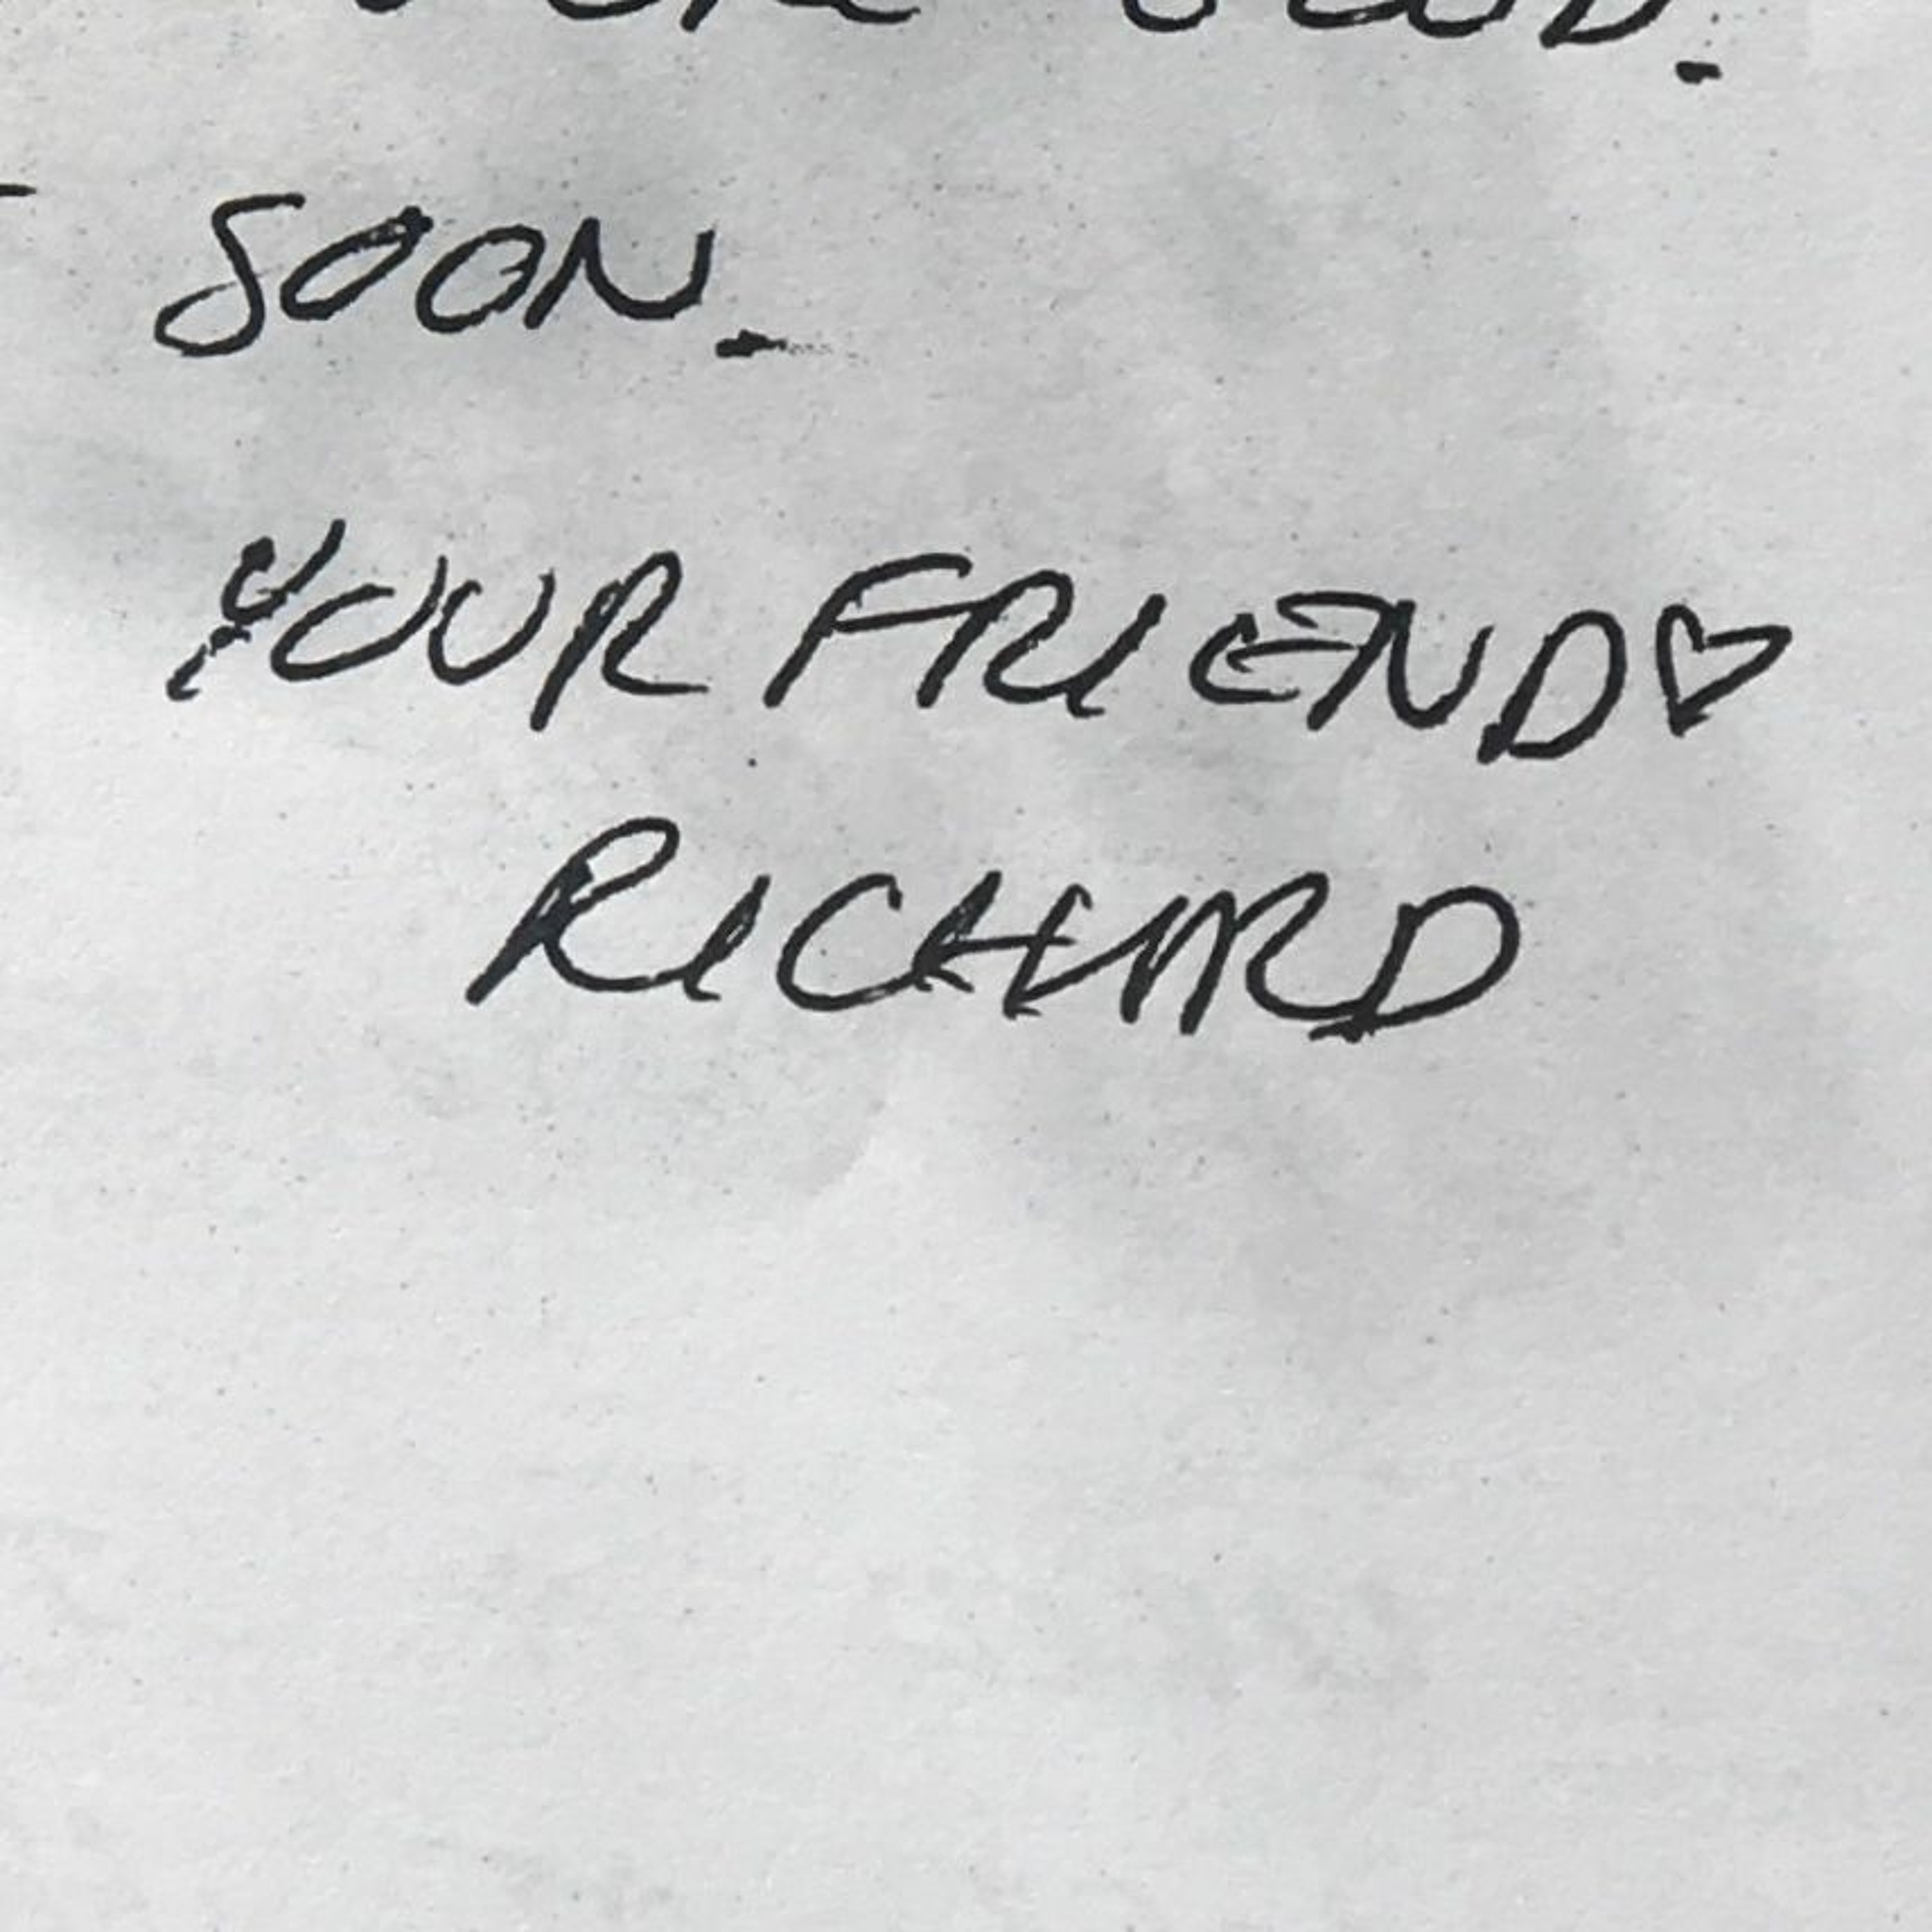 SOON.
YOUR FRIEND♡
RICHARD